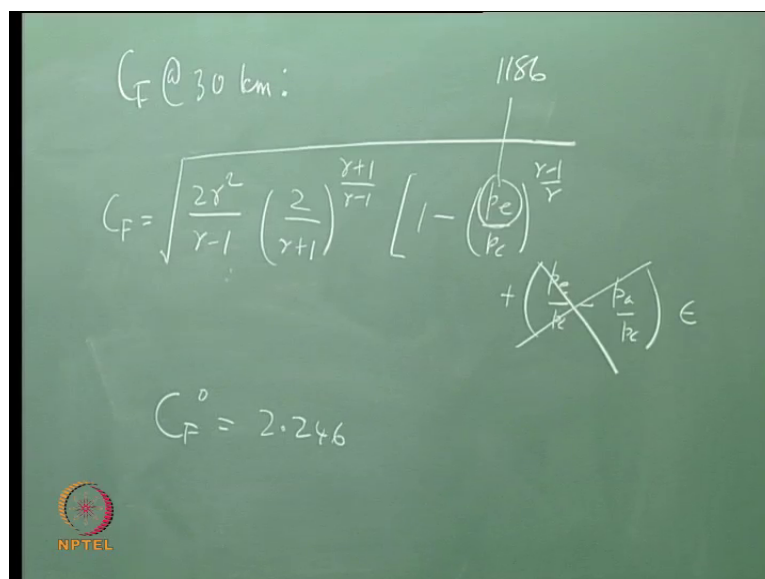 C_F @ 30 km:
1186
C_F = √(2γ²/(γ-1) (2/(γ+1))^((γ+1)/(γ-1)) [1 - (p_e/p_c)^((γ-1)/γ)
+ (p_e/p_c - p_a/p_c) ϵ
C_F^0 = 2.246
NPTEL